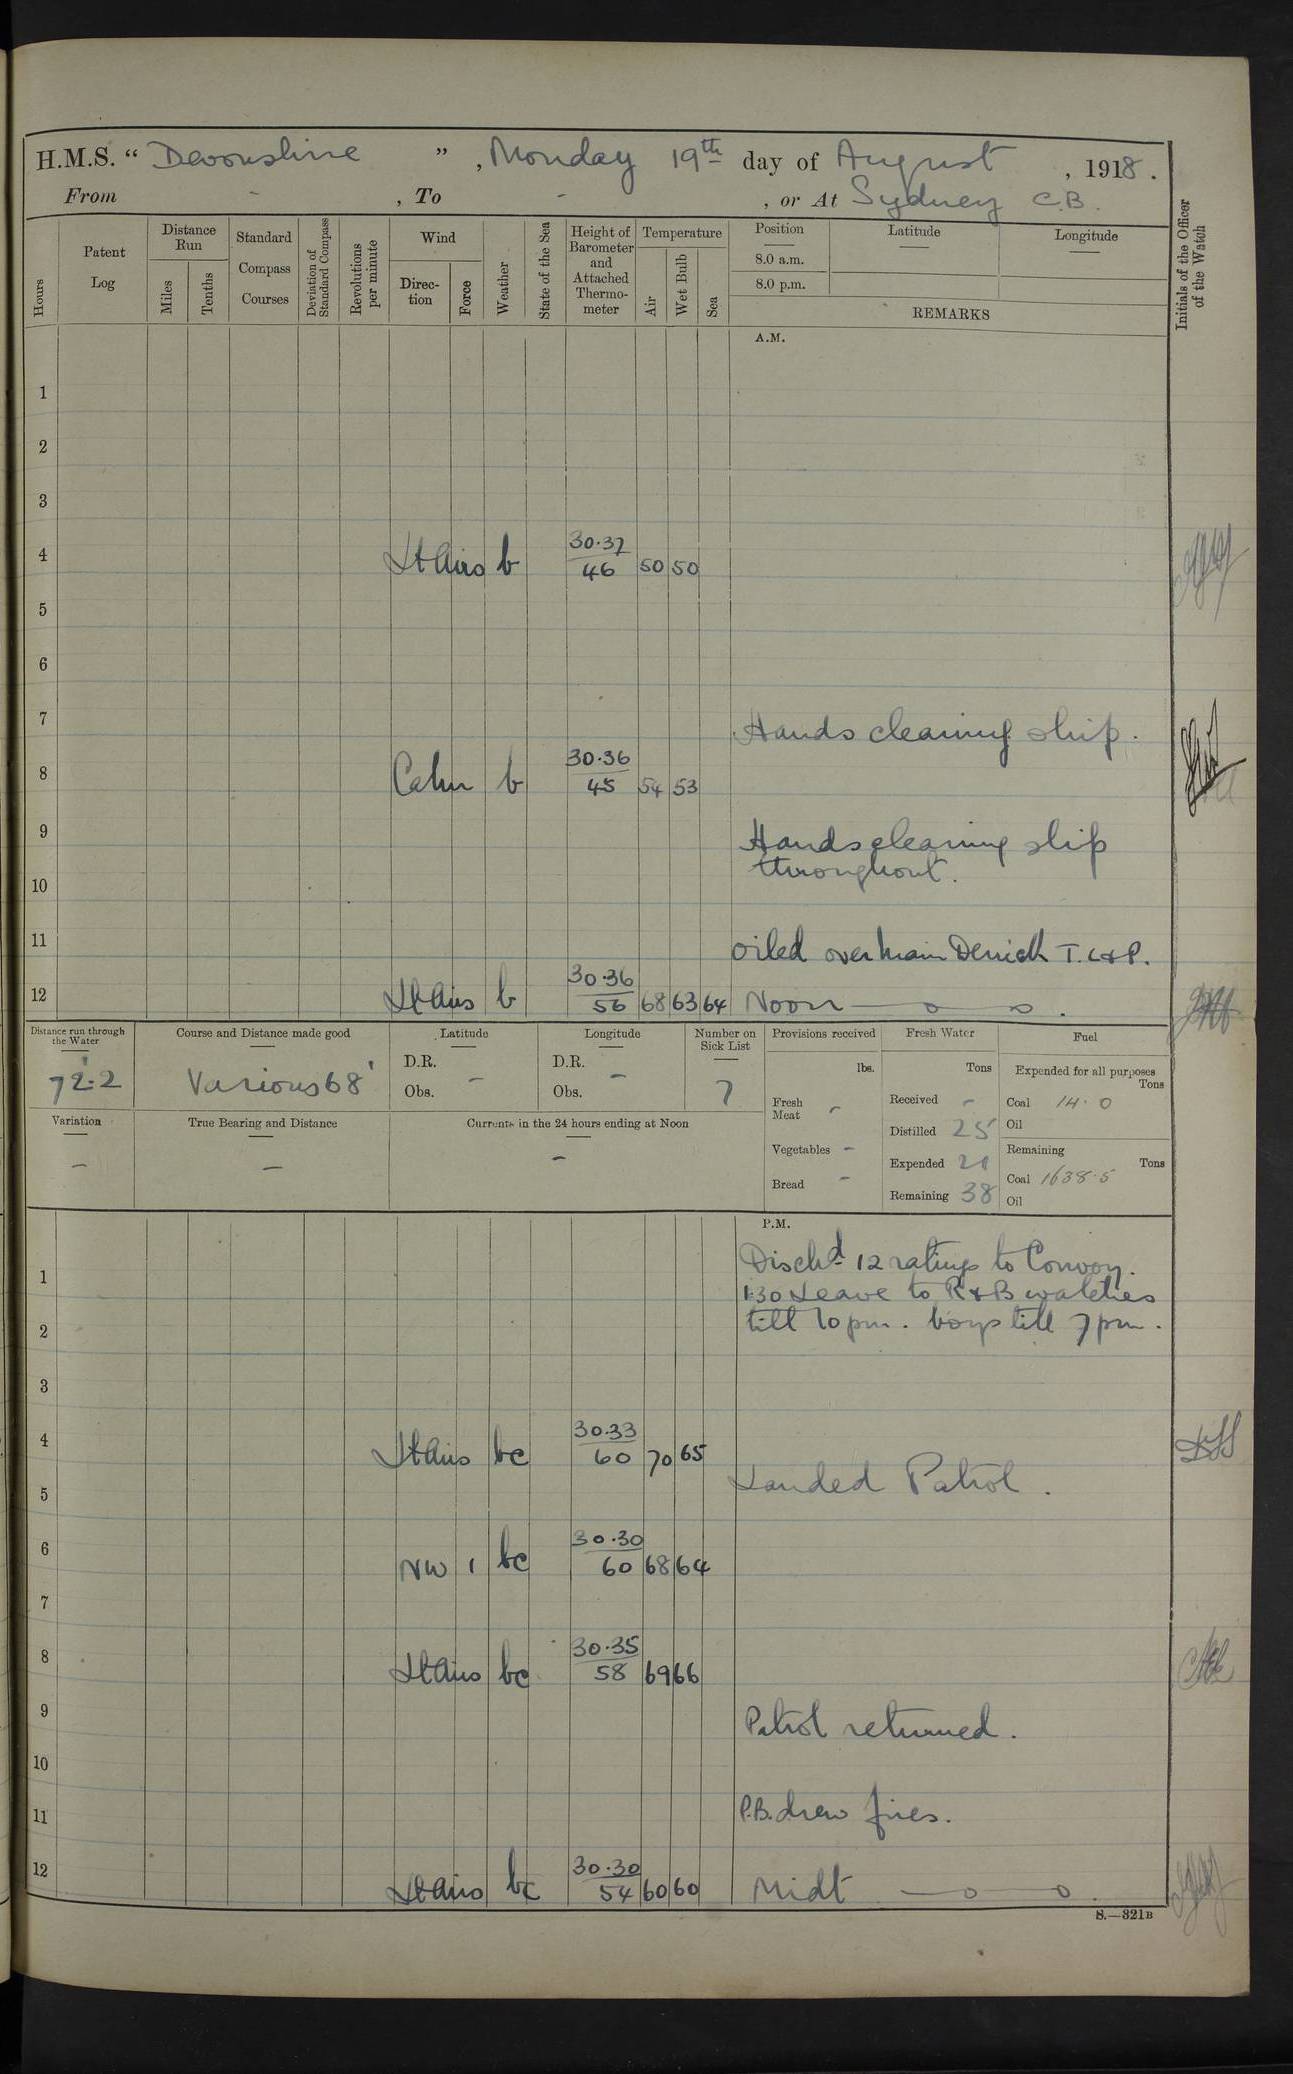 H.M.S. “ Devonshire ” , Monday 19th day of August , 1918 .
From - , To - , or At Sydney C.B.
Hours
Patent Log
Distance Run
Miles
Tenths
Standard Compass Courses
Deviation of Standard Compass
Revolutions per minute
Wind
Direc-tion
Force
Weather
State of the Sea
Height of Barometer and Attached Thermo-meter
Temperature
Air
Wet Bulb
Sea
Position
8.0 a.m.
8.0 p.m.
Latitude
Longitude
REMARKS
Initials of the Officer of the Watch
A.M.
1
2
3
4 Lt Airs b 30.37 46 50 50
5
6
7 Hands cleaning ship.
8 Calm b 30.36 45 54 53
9 Hands cleaning ship
throughout.
10
11 Oiled over Main Derrick T.L&P.
12 Lt Airs b 30.36 56 68 63 64 Noon
Distance run through the Water
72.2
Course and Distance made good
Various 68'
Latitude
D.R.
Obs. -
Longitude
D.R. -
Obs.
Number on Sick List
7
Provisions received
lbs.
Fresh Meat -
Vegetables -
Bread -
Fresh Water
Tons
Received -
Distilled 25
Expended 21
Remaining 38
Fuel
Expended for all purposes
Tons
Coal 14.0
Oil
Remaining
Tons
Coal 1638.5
Oil
Variation
-
True Bearing and Distance
-
Currents in the 24 hours ending at Noon
-
P.M.
Dischd 12 ratings to Convoy.
1
1.30 Leave to R & B watches
till 10 pm. boys till 7 pm.
2
3
4 Lt Airs bc 30.33 60 70 65
Landed Patrol.
5
6 NW 1 bc 30.30 60 68 64
7
8 Lt Airs bc 30.35 58 69 66
9 Patrol returned.
10
11 P.B. drew fires.
12 Lt Airs bc 30.30 54 60 60 Midt
S.—321B